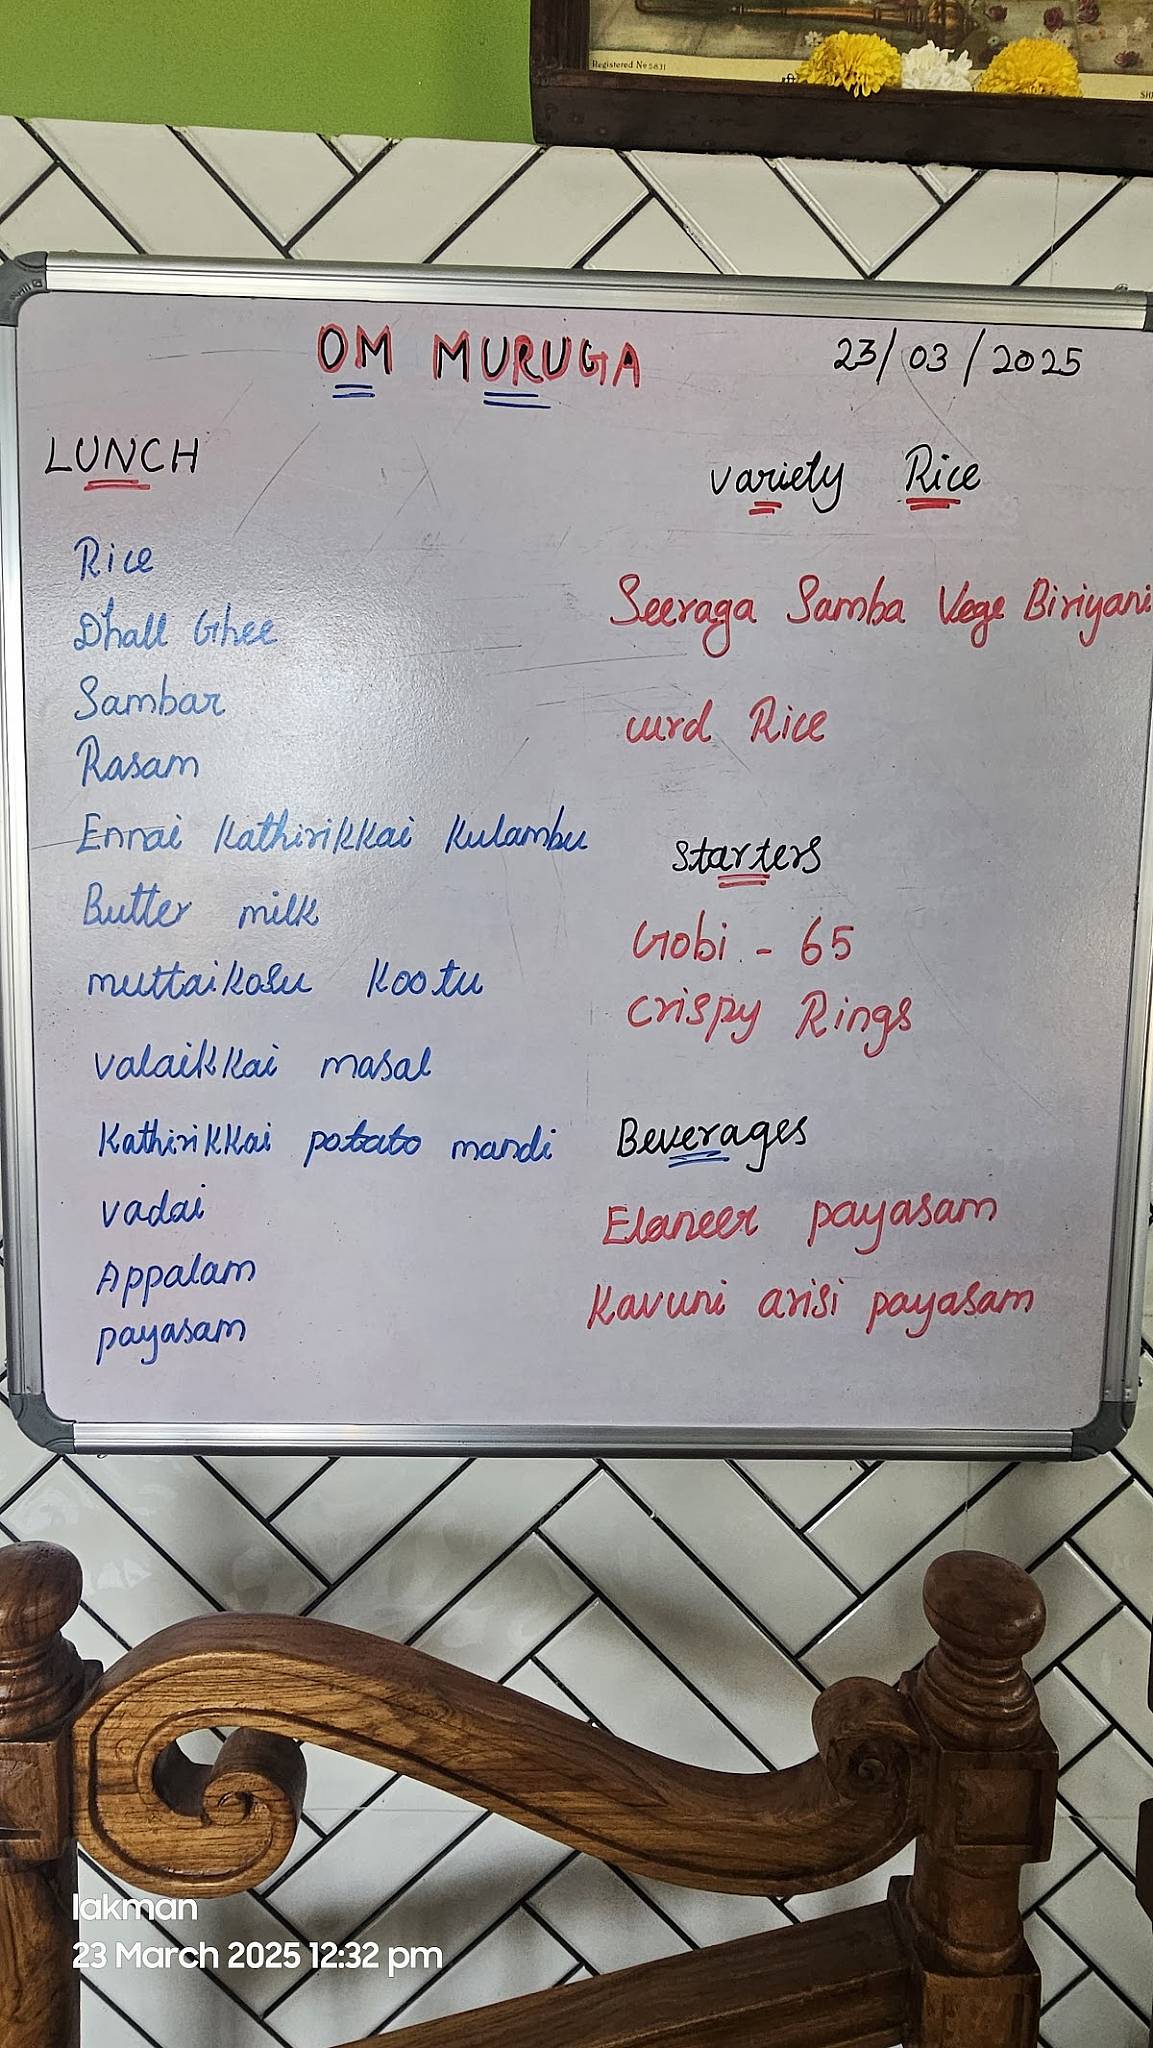 Registered No 5831
OM MURUGA 23/03/2025
LUNCH
Rice
Dhall Ghee
Sambar
Rasam
Ennai Kathirikkai Kulambu
Butter milk
muttaikosu Kootu
valaikkai masal
Kathirikkai potato mandi
vadai
Appalam
payasam
variety Rice
Seeraga Samba Vege Biriyani
curd Rice
starters
Gobi - 65
Crispy Rings
Beverages
Elaneer payasam
Kavuni arisi payasam
lakman
23 March 2025 12:32 pm